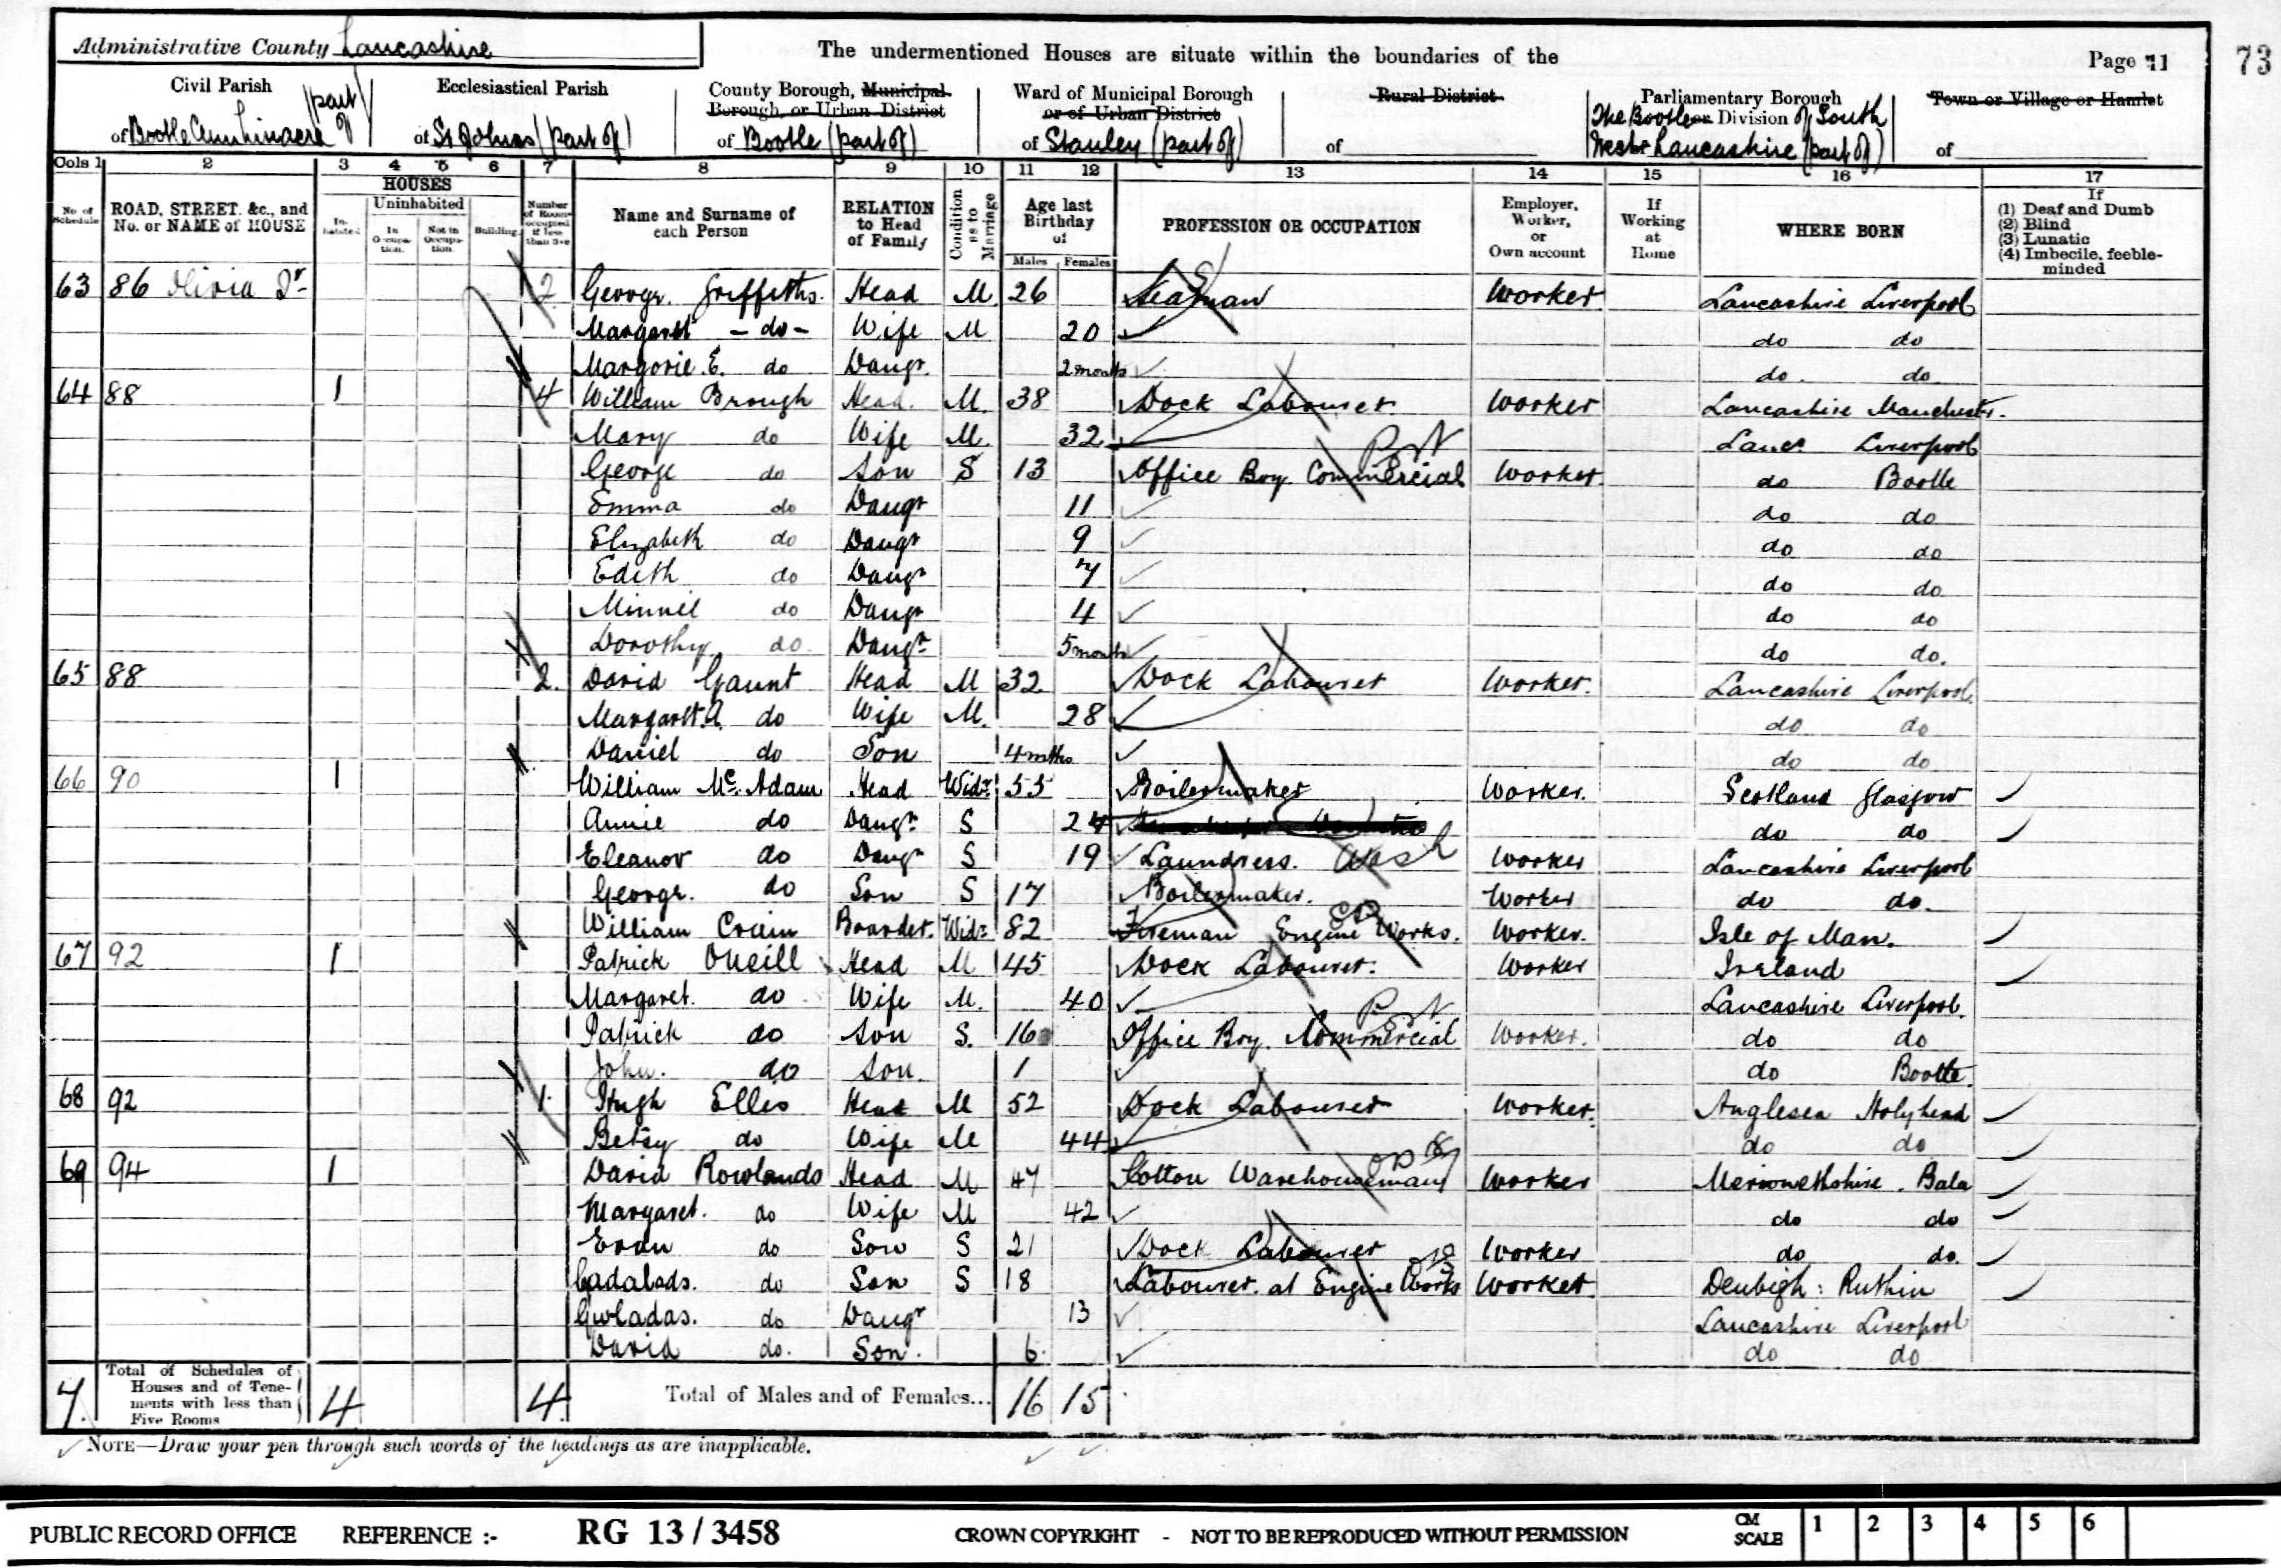 Administrative County Lancashire
The undermentioned Houses are situate within the boundaries of the
Page 11
73
Civil Parish
of Bootle cum Linacre (part of)
Ecclesiastical Parish
of St Johns (part of)
County Borough, Municipal Borough, or Urban District
of Bootle (part of)
Ward of Municipal Borough or of Urban District
of Stanley (part of)
Rural District
of
Parliamentary Borough or Division
The Bootle Division of South West Lancashire (part of)
Town or Village or Hamlet
of
Cols 1 2 3 4 5 6 7 8 9 10 11 12 13 14 15 16 17
No. of Schedule
ROAD, STREET, &c., and No. or NAME of HOUSE
HOUSES
Inhabited
Uninhabited
In Occupation.
Not in Occupation.
Building.
Number of Rooms occupied if less than five
Name and Surname of each Person
RELATION to Head of Family
Condition as to Marriage
Age last Birthday of
Males Females
PROFESSION OR OCCUPATION
Employer, Worker, or Own account
If Working at Home
WHERE BORN
If
(1) Deaf and Dumb
(2) Blind
(3) Lunatic
(4) Imbecile, feeble-minded
63 86 Olivia Sr 2 George. Griffiths. Head M. 26 Seaman Worker Lancashire Liverpool
Margaret - do - Wife M 20 do do
Margorie. E. do Daugr. 2 months do. do
64 88 1 4 William Brough Head. M. 38 Dock Labourer. Worker Lancashire Manchestr.
Mary do Wife M. 32 Lancs Liverpool
George do Son S 13 Office Boy Commercial Worker. do Bootle
Emma do Daugr 11 do do
Elizabeth do Daugr 9 do do
Edith do Daugr 7 do do
Minnie do Daugr 4 do do
Dorothy do Daugr 5 months do do.
65 88 2. David Gaunt Head M 32 Dock Labourer Worker. Lancashire Liverpool
Margaret. A. do Wife M. 28 do do
Daniel do Son 4 mths do do
66 90 1 William Mc. Adam Head Widr 55 Boilermaker Worker. Scotland Glasgow
Annie do Daugr S 24 do do
Eleanor do Daugr S 19 Laundress. Wash Worker Lancashire Liverpool
George. do Son S 17 Boilermaker. Worker do do.
William Crain Boarder. Widr 82 Fireman Engine Works. Worker. Isle of Man.
67 92 1 Patrick ONeill Head M 45 Dock Labourer. Worker Ireland
Margaret. do Wife M. 40 Lancashire Liverpool.
Patrick do Son S. 16 Office Boy. Commercial Worker. do do
John. do Son. 1 do Bootle.
68 92 1. Hugh Ellis Head M 52 Dock Labourer Worker. Anglesea Holyhead
Betsy do Wife M 44 do do
69 94 1 David Rowlands Head M 47 Cotton Warehouseman Worker Merionethshire. Bala
Margaret. do Wife M 42 do do
Evan do Son S 21 Dock Labourer Worker do do.
Cadalads. do Son S 18 Labourer. at Engine Works Worker Denbigh: Ruthin
Gwladas. do Daugr 13 Lancashire Liverpool
David do. Son. 6. do do
7. Total of Schedules of Houses and of Tenements with less than Five Rooms 4 4. Total of Males and of Females... 16 15
NOTE—Draw your pen through such words of the headings as are inapplicable.
PUBLIC RECORD OFFICE REFERENCE :- RG 13 / 3458 CROWN COPYRIGHT - NOT TO BE REPRODUCED WITHOUT PERMISSION CM SCALE 1 2 3 4 5 6